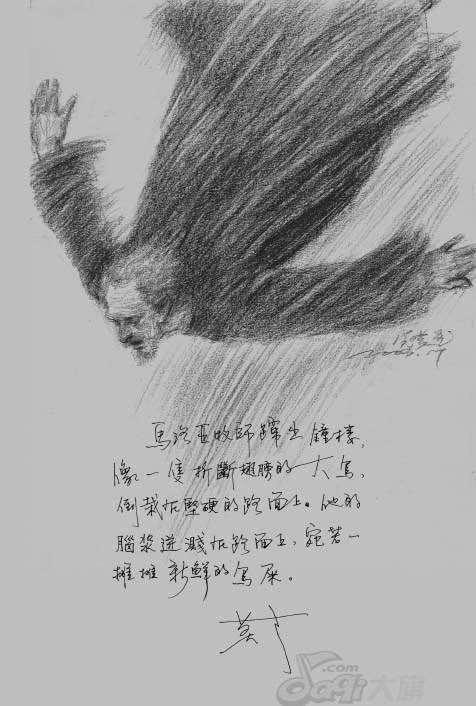 2003.7
馬洛亞牧師蹿出鐘樓，
像一隻折斷翅膀的大鳥，
倒栽在堅硬的路面上。他的
腦漿迸濺在路面上，宛若一
摊摊新鮮的鳥屎。
莫言
.com
daqi大旗